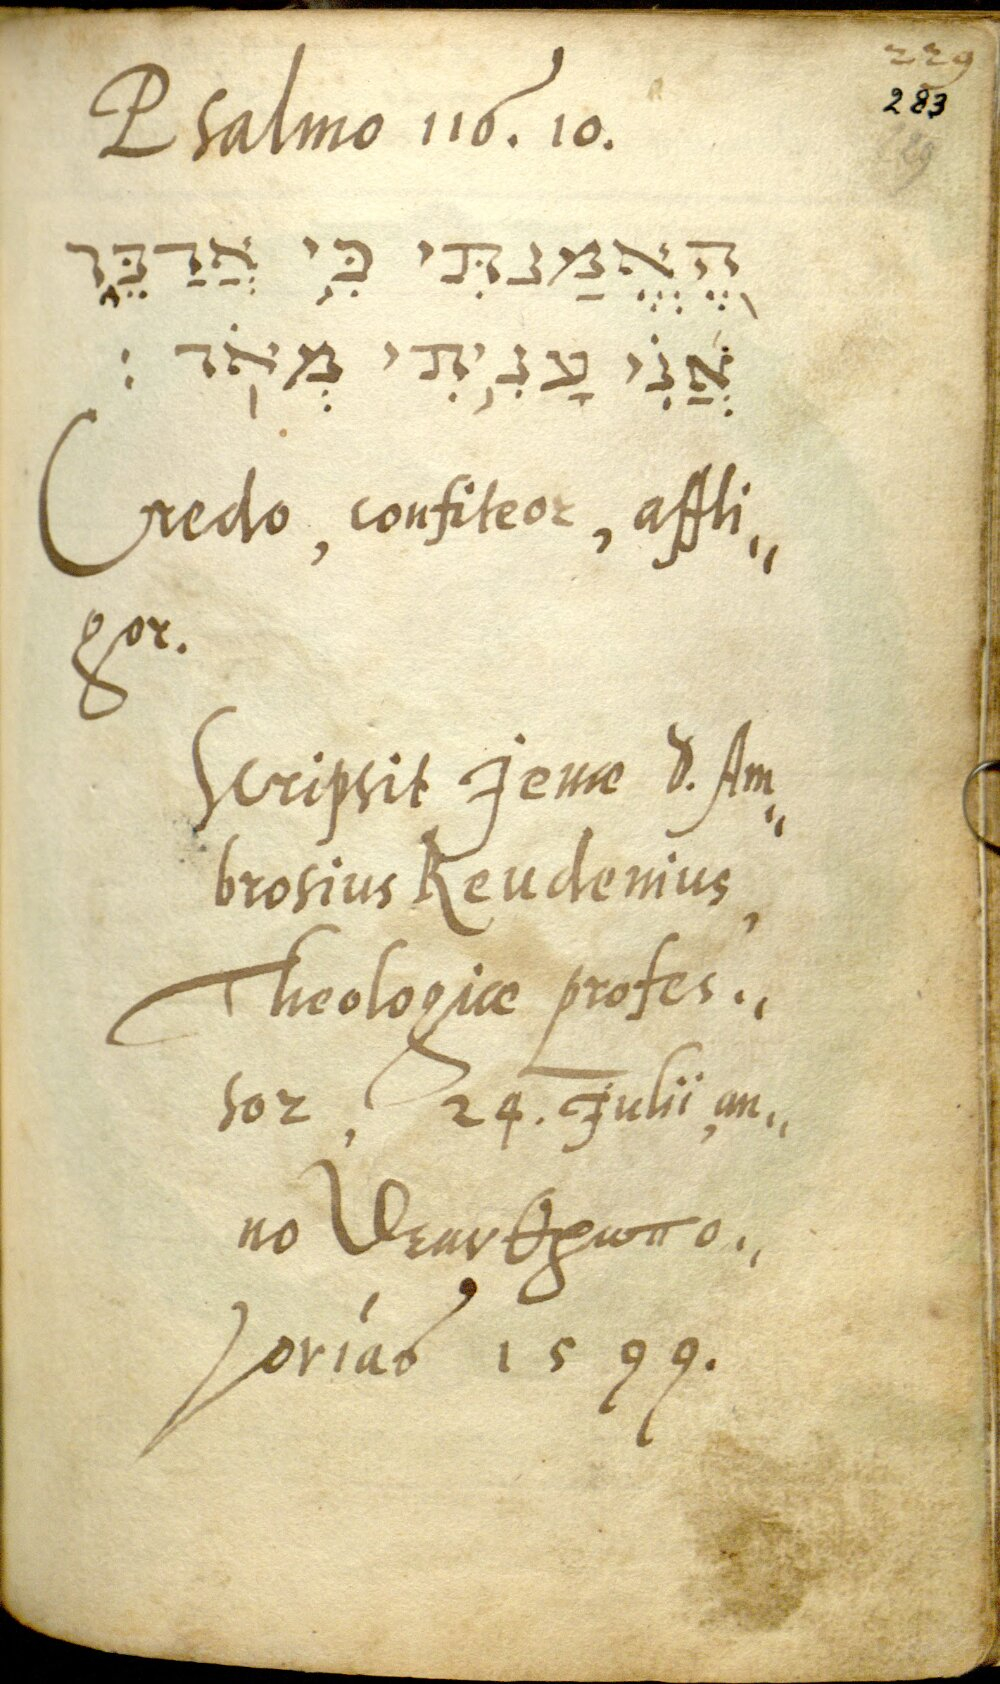 229
283
229
Psalmo 116. 10.
הֶאֱמַנְתִּי כִּי אֲדַבֵּר
אֲנִי עָנִיתִי מְאֹד :
Credo, confiteor, affli„
gor.
Scripsit Jenæ D. Am„
brosius Reudenius,
Theologiæ profes„
sor, 24. Julii, an„
no θεανθρωπο„
γονίας 1599.